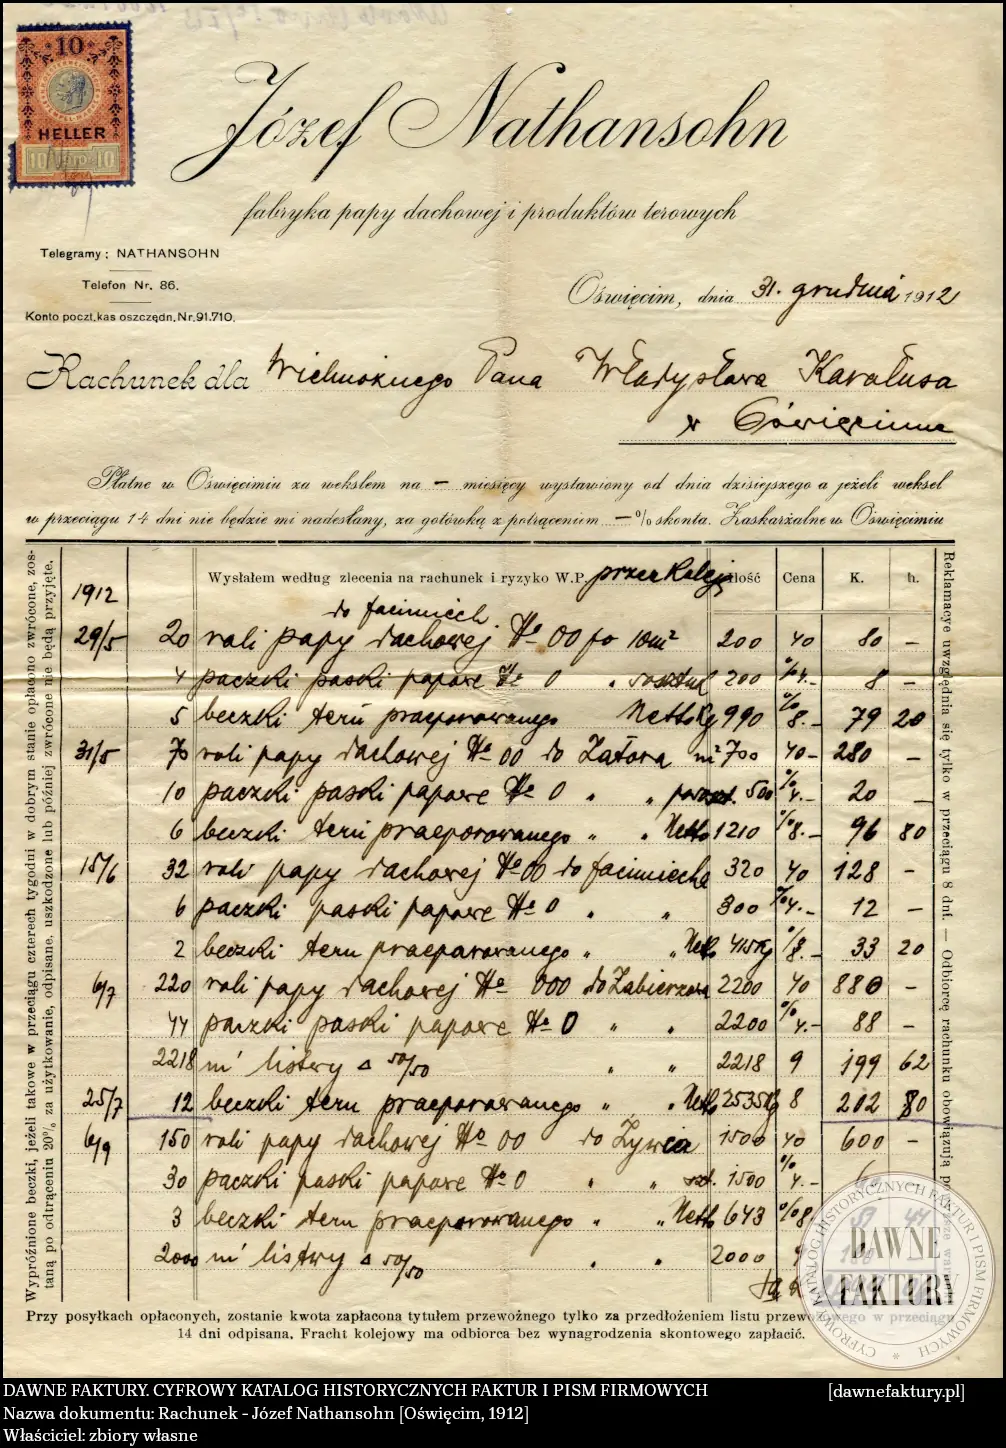 10
HELLER
10 10
Józef Nathansohn
fabryka papy dachowej i produktów terowych
Telegramy: NATHANSOHN
Telefon Nr. 86.
Konto poczt. kas oszczędn. Nr. 91.710.
Oświęcim, dnia 31. grudnia 1912
Rachunek dla Wielmożnego Pana Władysława Karalusa
w Oświęcimie
Płatne w Oświęcimiu za wekslem na — miesięcy wystawiony od dnia dzisiejszego a jeżeli weksel
w przeciągu 14 dni nie będzie mi nadesłany, za gotówką z potrąceniem — % skonta. Zaskarżalne w Oświęcimiu
Wypróżnione beczki, jeżeli takowe w przeciągu czterech tygodni w dobrym stanie opłacono zwrócone, zos-
taną po odtrąceniu 20% za użytkowanie, odpisane. uszkodzone lub później zwrócone nie będą przyjęte.
1912 Wysłałem według zlecenia na rachunek i ryzyko W.P. przez kolej Cena K. h.
do facimiech
29/5 20 roli papy dachowej No 00 po 10m² 200 40 80 —
4 paczki paski papowe No 0 " 50 sztuk 200 % 4.- 8 —
5 beczki teru praeporowanego Netto Kg 990 % 8.- 79 20
31/5 70 roli papy dachowej No 00 do Zatora m² 700 40 - 280 —
10 paczki paski papowe No 0 " " 500 % 4.- 20 —
6 beczki teru praeporowanego " " Netto 1210 % 8.- 96 80
15/6 32 roli papy dachowej No 00 do facimiecha 320 40 128 —
6 paczki paski papowe No 0 " " 300 % 4.- 12 —
2 beczki teru praeparowanego " " Netto 415 Kg % 8.- 33 20
6/7 220 roli papy dachowej No 000 do Zabierzowa 2200 40 880 —
44 paczki paski papowe No 0 " " 2200 % 4.- 88 —
2218 m' listwy Δ 50/50 " " 2218 9 199 62
25/7 12 beczki teru praeporowanego " " Netto 2535 Kg 8 202 80
6/9 150 roli papy dachowej No 00 do Żywca 1500 40 600 —
30 paczki paski papowe No 0 " " szt. 1500 % 4.-
3 beczki teru praeporowanego " " Netto 643 % 8. 51 44
2000 m' listwy Δ 50/50 " " 2000 9
Reklamacye uwzględnia się tylko w przeciągu 8 dni. — Odbiorcę rachunku obowiązują
Przy posyłkach opłaconych, zostanie kwota zapłacona tytułem przewoźnego tylko za przedłożeniem listu przewozowego w przeciągu
14 dni odpisana. Fracht kolejowy ma odbiorca bez wynagrodzenia skontowego zapłacić.
CYFROWY KATALOG HISTORYCZNYCH FAKTUR I PISM FIRMOWYCH
DAWNE
FAKTURY
DAWNE FAKTURY. CYFROWY KATALOG HISTORYCZNYCH FAKTUR I PISM FIRMOWYCH [dawnefaktury.pl]
Nazwa dokumentu: Rachunek - Józef Nathansohn [Oświęcim, 1912]
Właściciel: zbiory własne